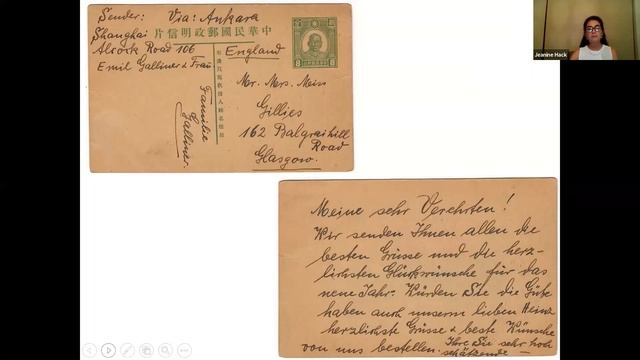 Sender: Via: Ankara
Shanghai
中華民國郵政明信片
Alcock Road 106
England
Emil Galliner & Frau
Familie
Galliner.
Mr. Mrs. Meiss
Gillies
162 Balgraihill
Road
Glasgow.
Meine sehr Verehrten!
Wir senden Ihnen allen die
besten Grüsse und die herz-
lichsten Glückwünsche für das
neue Jahr. Würden Sie die Güte
haben auch unserm lieben Heinz
herzlichste Grüsse & beste Wünsche
von uns bestellen. Ihre Sie sehr hoch
schätzende
Jeanine Hack